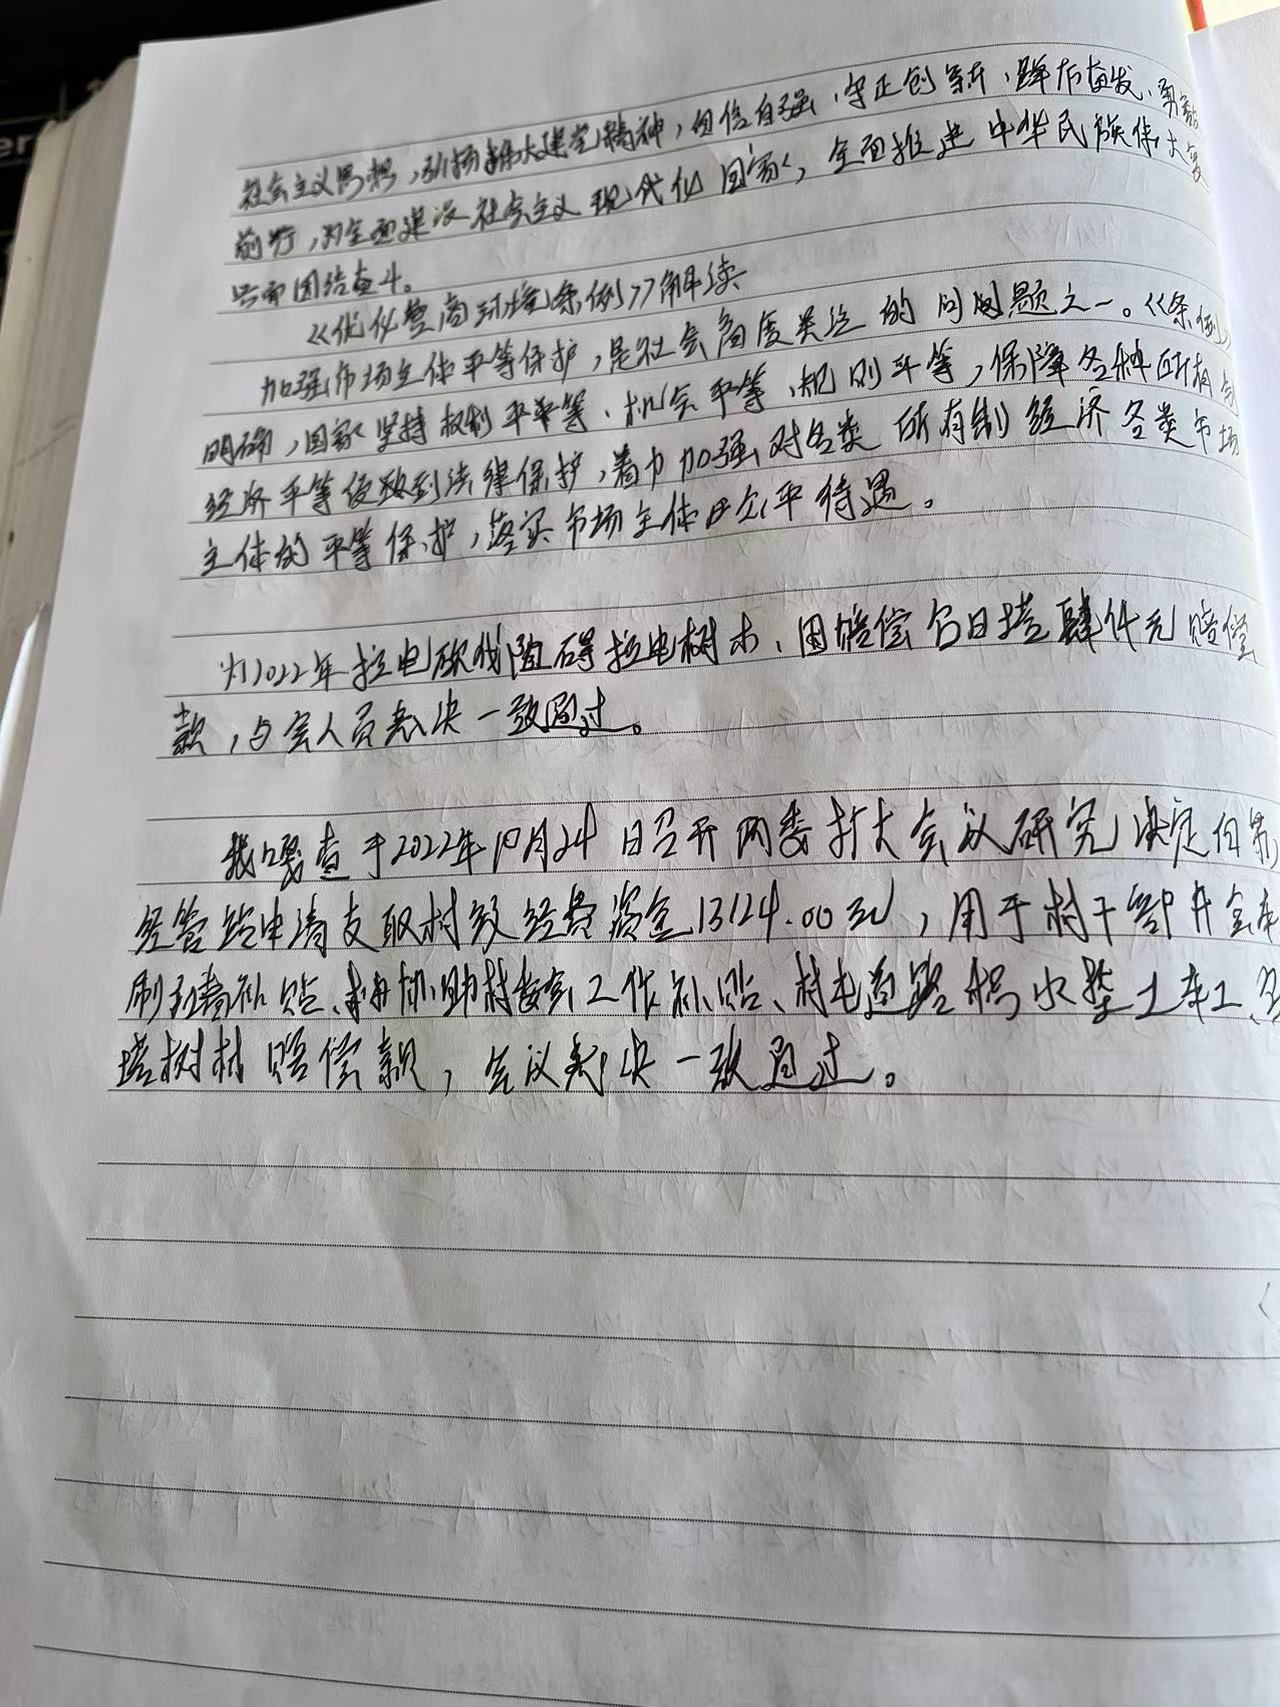 社会主义思想,弘扬伟大建党精神,自信自强、守正创新,踔厉奋发、勇毅
前行,为全面建设社会主义现代化国家,全面推进中华民族伟大复
兴而团结奋斗。
《优化营商环境条例》解读
加强市场主体平等保护,是社会高度关注的问题之一。《条例》
明确,国家坚持权利平等、机会平等、规则平等,保障各种所有制
经济平等受到法律保护,着力加强对各类所有制经济各类市场
主体的平等保护,落实市场主体公平待遇。
为2022年拉电砍伐阻碍拉电树木,因赔偿白日塔肆仟元赔偿
款,与会人员表决一致同过。
我嘎查于2022年10月24日召开两委扩大会议研究,决定向苏
经管站申请支取村级经费资金13124.00元,用于村干部
补贴、协助村委会工作补贴、村屯道路积水垫土车工、
塔树材赔偿款,会议表决一致同过。